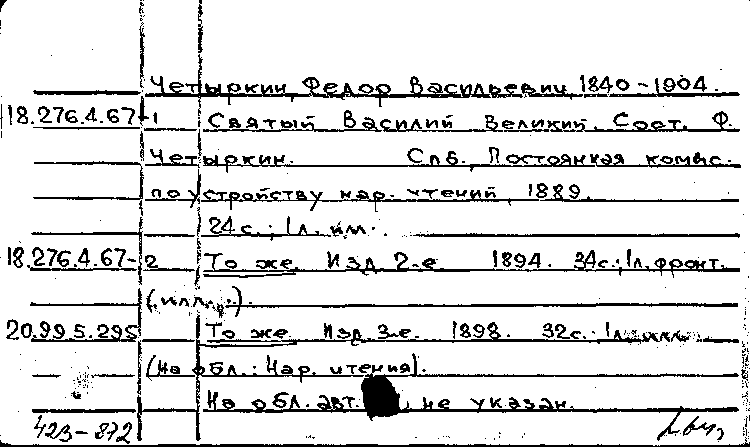 Четыркин, Федор Васильевич, 1840-1904.
18.276.4.67-1 Святый Василий Великий. Сост. Ф.
Четыркин. Спб., Постоянная комис.
по устройству нар. чтений, 1889.
24с.; 1л. илл.
18.276.4.67-2 То же. Изд. 2-е. 1894. 34с.; 1л. фронт.
(илл.).
20.99.5.295 То же. Изд. 3-е. 1898. 32с.; 1л. илл.
(На обл.: Нар. чтения).
На обл. авт. не указан.
423-872